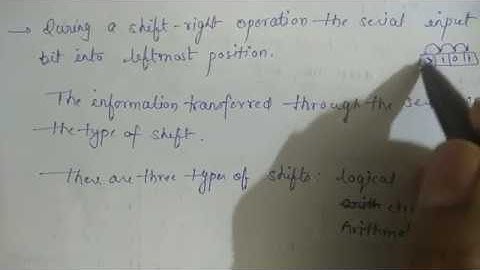 → During a shift-right operation the serial input
bit into leftmost position.
1 0 1
The information transferred through the
the type of shift.
There are three types of shifts: Logical